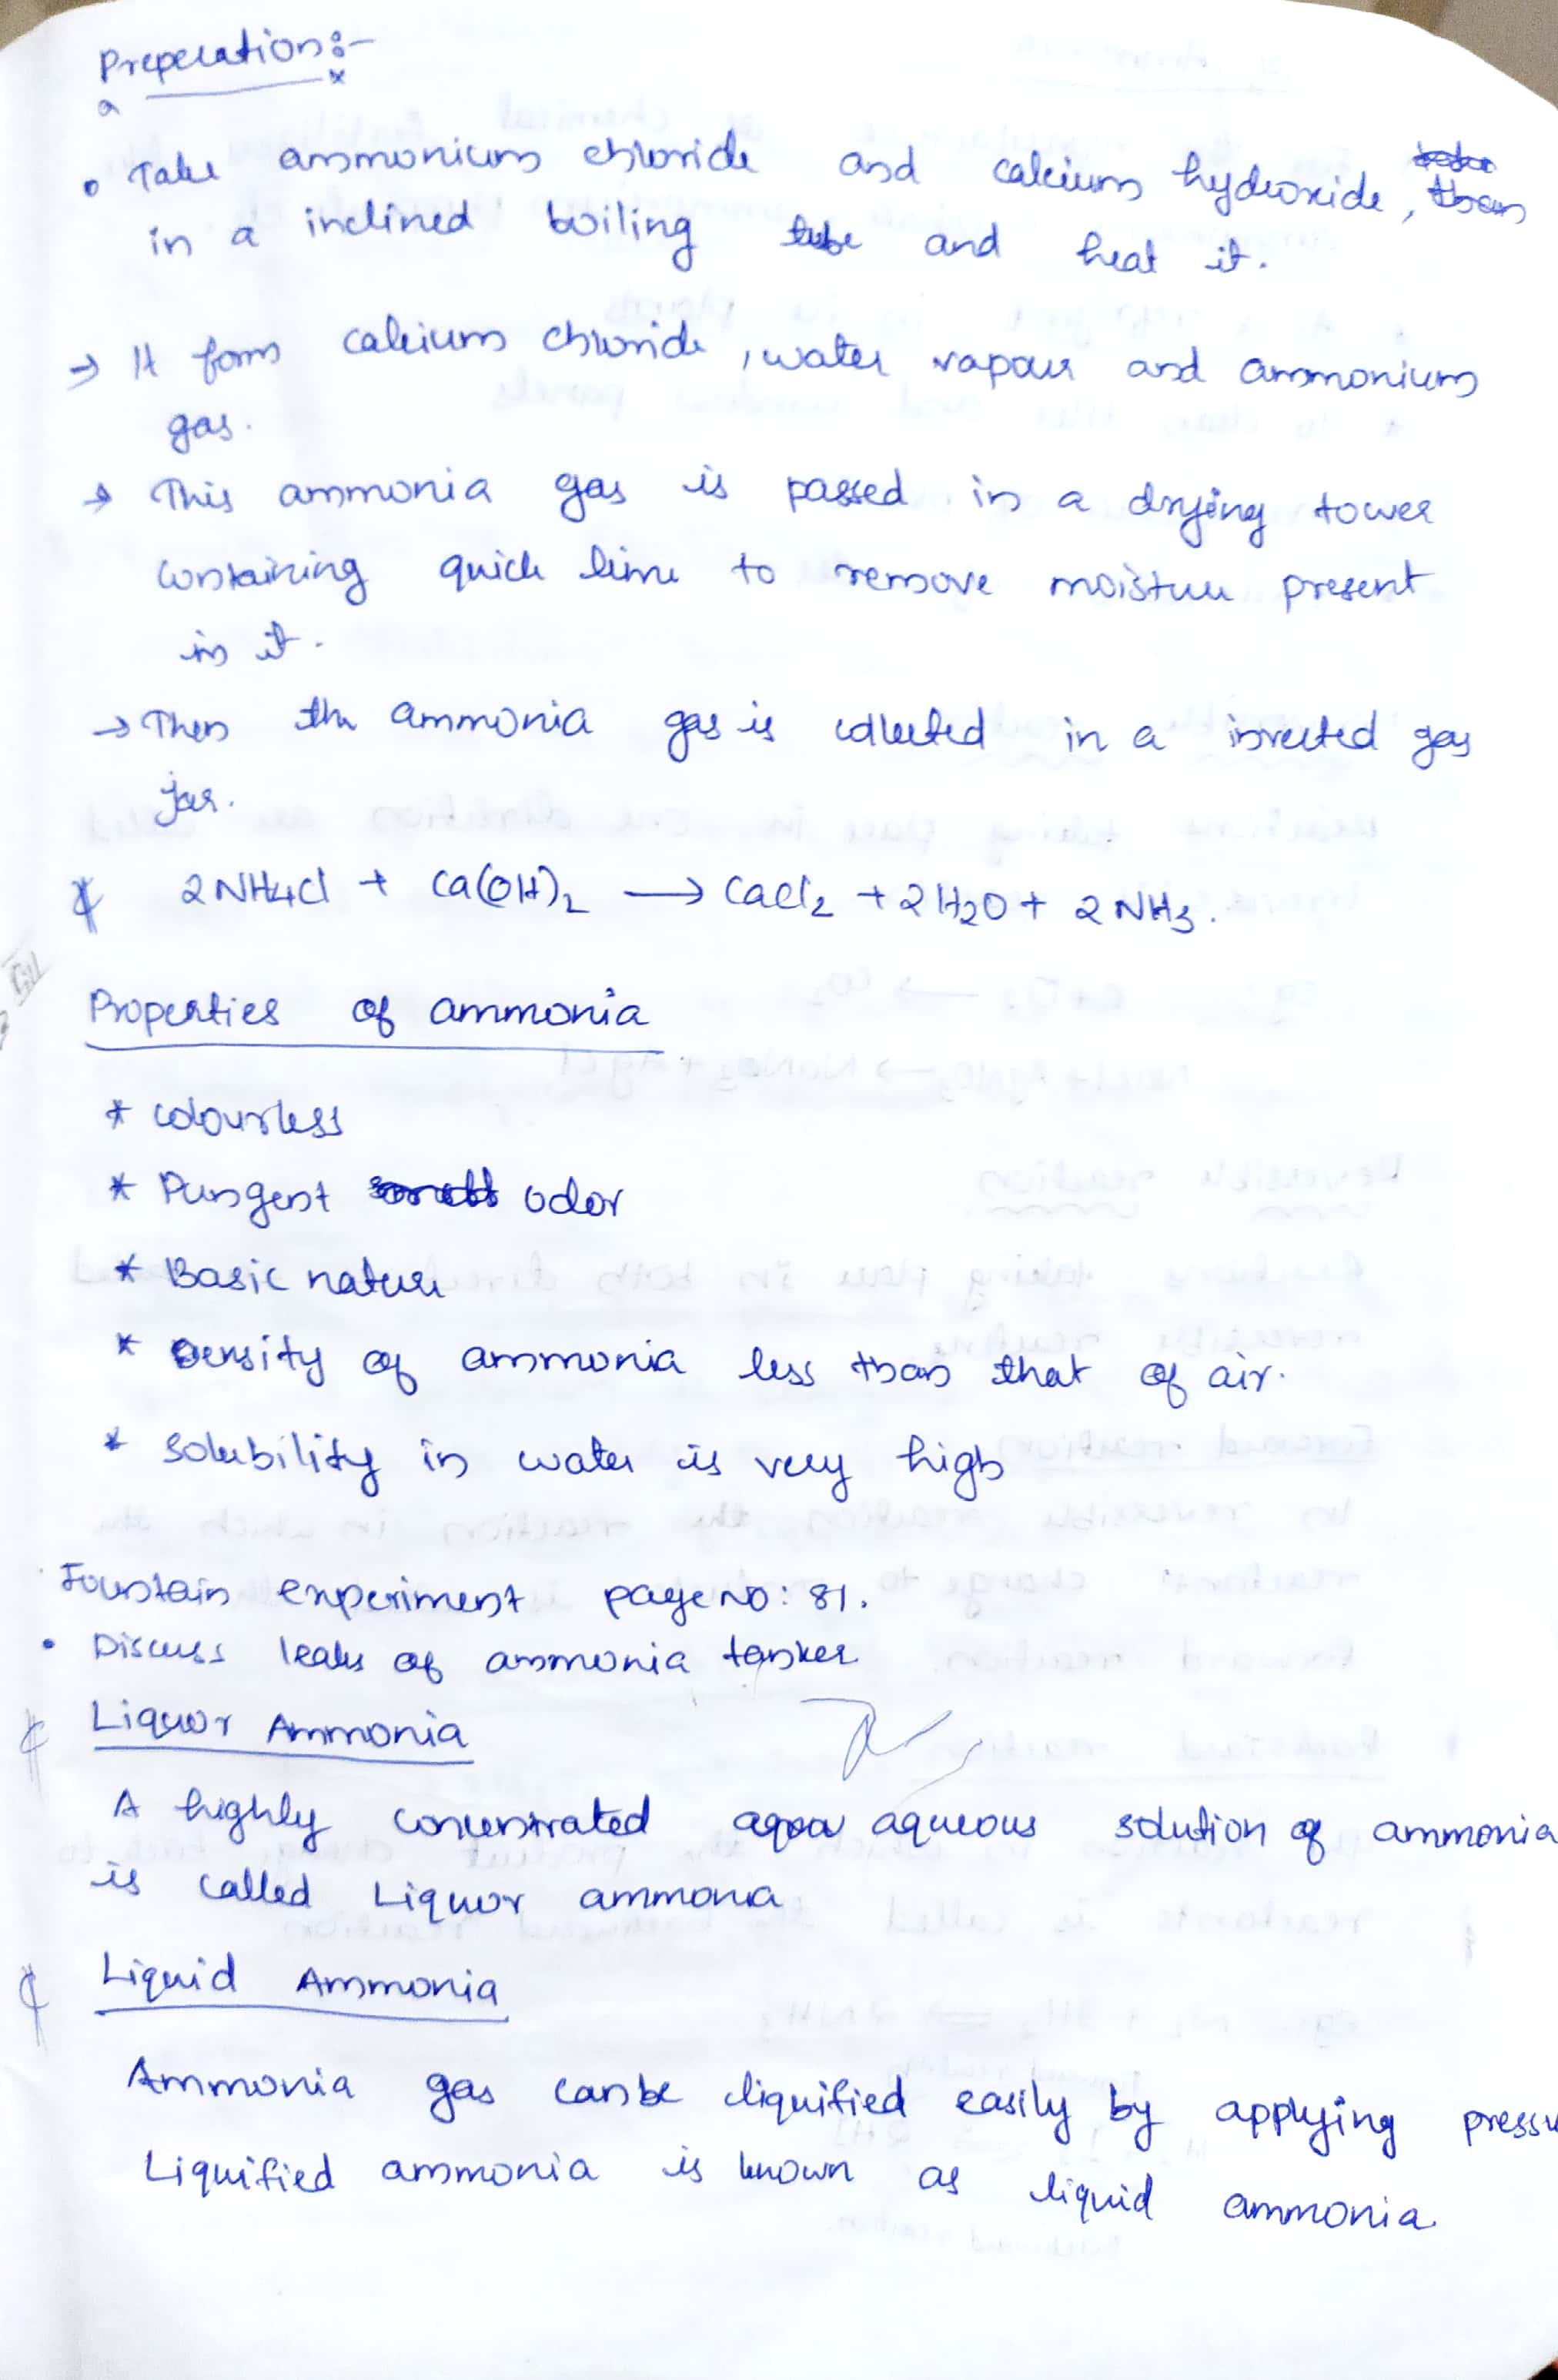 Preperation:-
• Take ammonium chloride and calcium hydroxide, than
in a inclined boiling tube and heat it.
→ It form calcium chloride, water vapour and ammonium
gas.
→ This ammonia gas is passed in a drying tower
containing quick lime to remove moisture present
in it.
→ Then the ammonia gas is collected in a inverted gas
jar.
2NH4Cl + Ca(OH)₂ → CaCl₂ + 2H₂O + 2NH₃.
Properties of ammonia
* colourless
* Pungent smell odor
* Basic nature
* Density of ammonia less than that of air.
* Solubility in water is very high
Fountain experiment page No: 81.
• Discuss leaks of ammonia tanker
Liquor Ammonia
A highly concentrated aqoa aqueous solution of ammonia
is called Liquor ammonia
Liquid Ammonia
Ammonia gas can be liquified easily by applying pressu
Liquified ammonia is known as liquid ammonia.